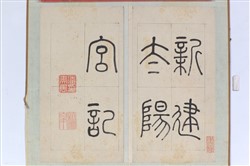 新建
太陽
宮記